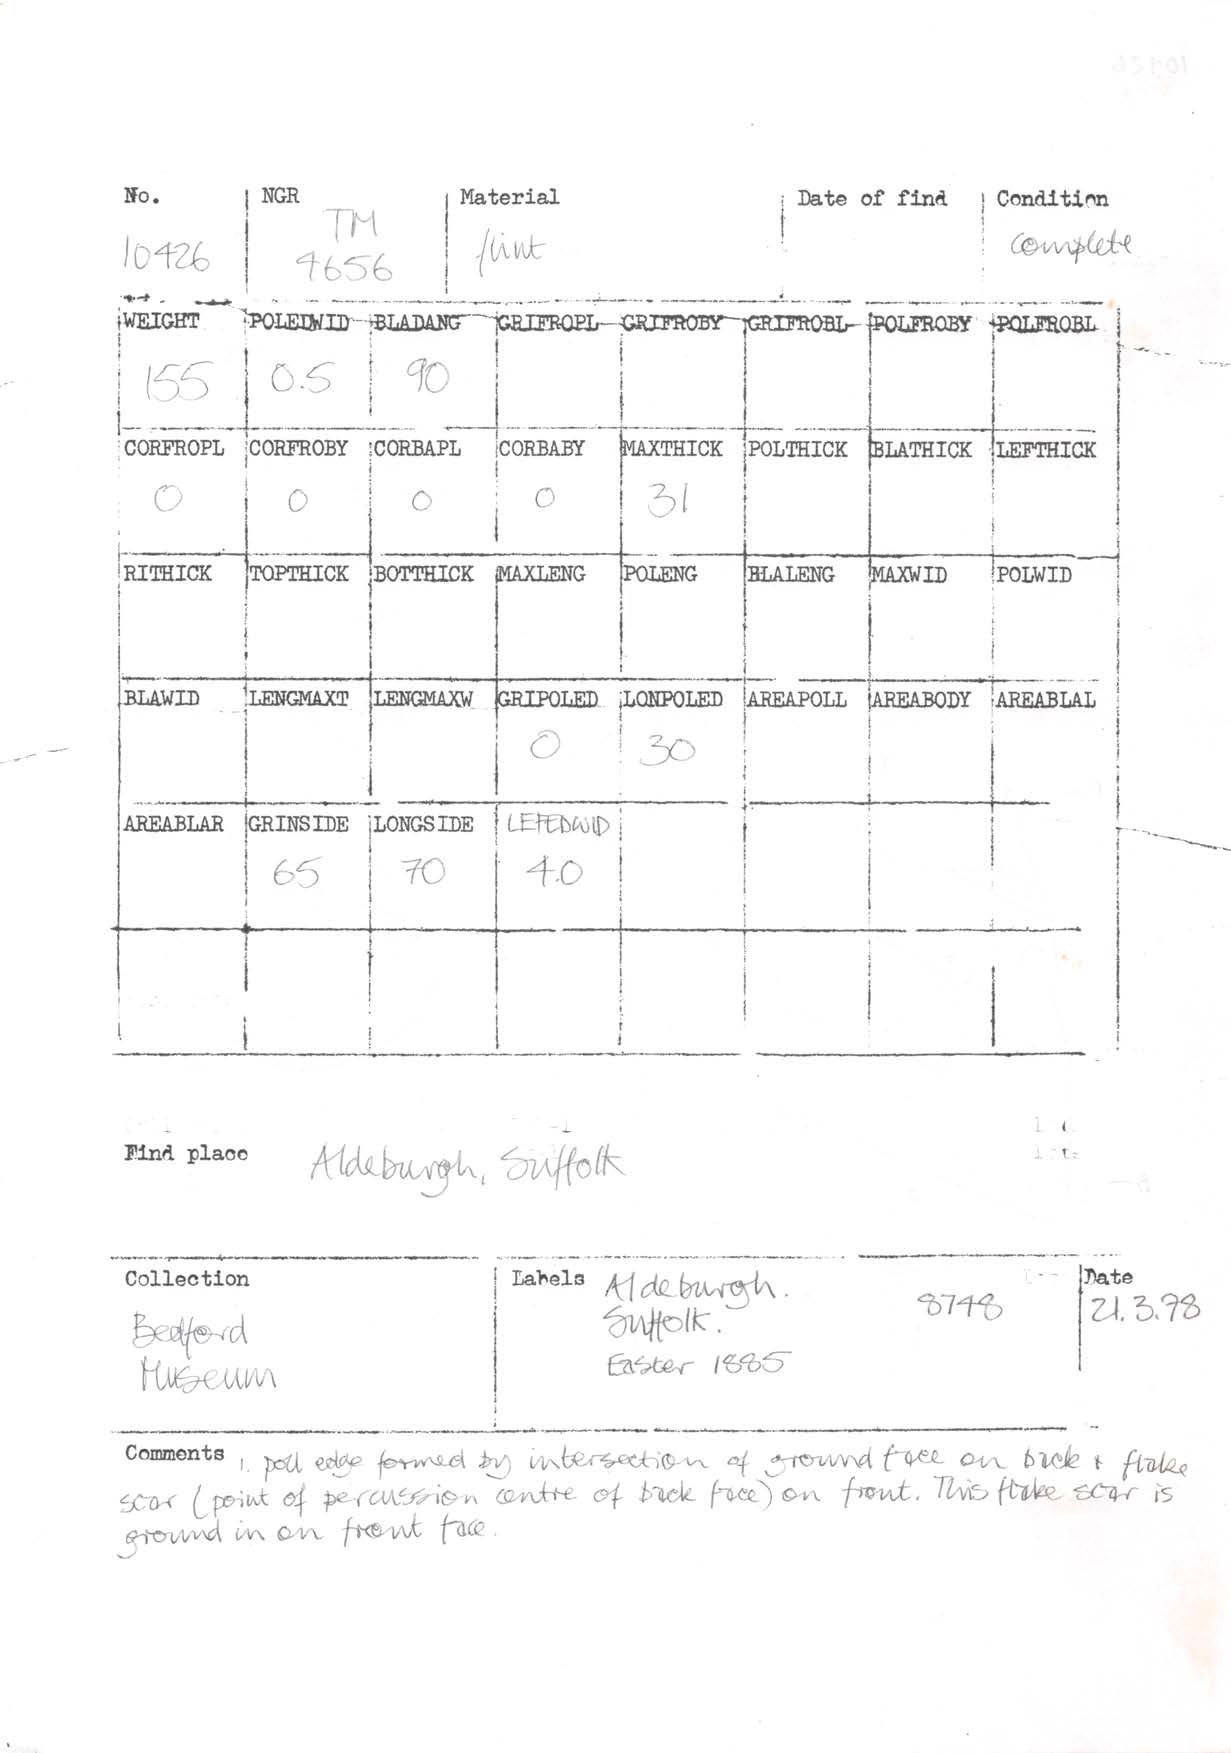 No. NGR Material Date of find Condition
10426 TM 4656 flint complete
WEIGHT POLEDWID BLADANG GRIFROPL GRIFROBY GRIFROBL POLFROBY POLFROBL
155 0.5 90
CORFROPL CORFROBY CORBAPL CORBABY MAXTHICK POLTHICK BLATHICK LEFTHICK
0 0 0 0 31
RITHICK TOPTHICK BOTTHICK MAXLENG POLENG BLALENG MAXWID POLWID
BLAWID LENGMAXT LENGMAXW GRIPOLED LONPOLED AREAPOLL AREABODY AREABLAL
0 30
AREABLAR GRINSIDE LONGSIDE LEFEDWID
65 70 4.0
Find place Aldeburgh, Suffolk
Collection Labels Aldeburgh. Date
Bedford Suffolk. 8748 21.3.78
Museum Easter 1885
Comments 1. poll edge formed by intersection of ground face on back + flake
scar (point of percussion centre of back face) on front. This flake scar is
ground in on front face.